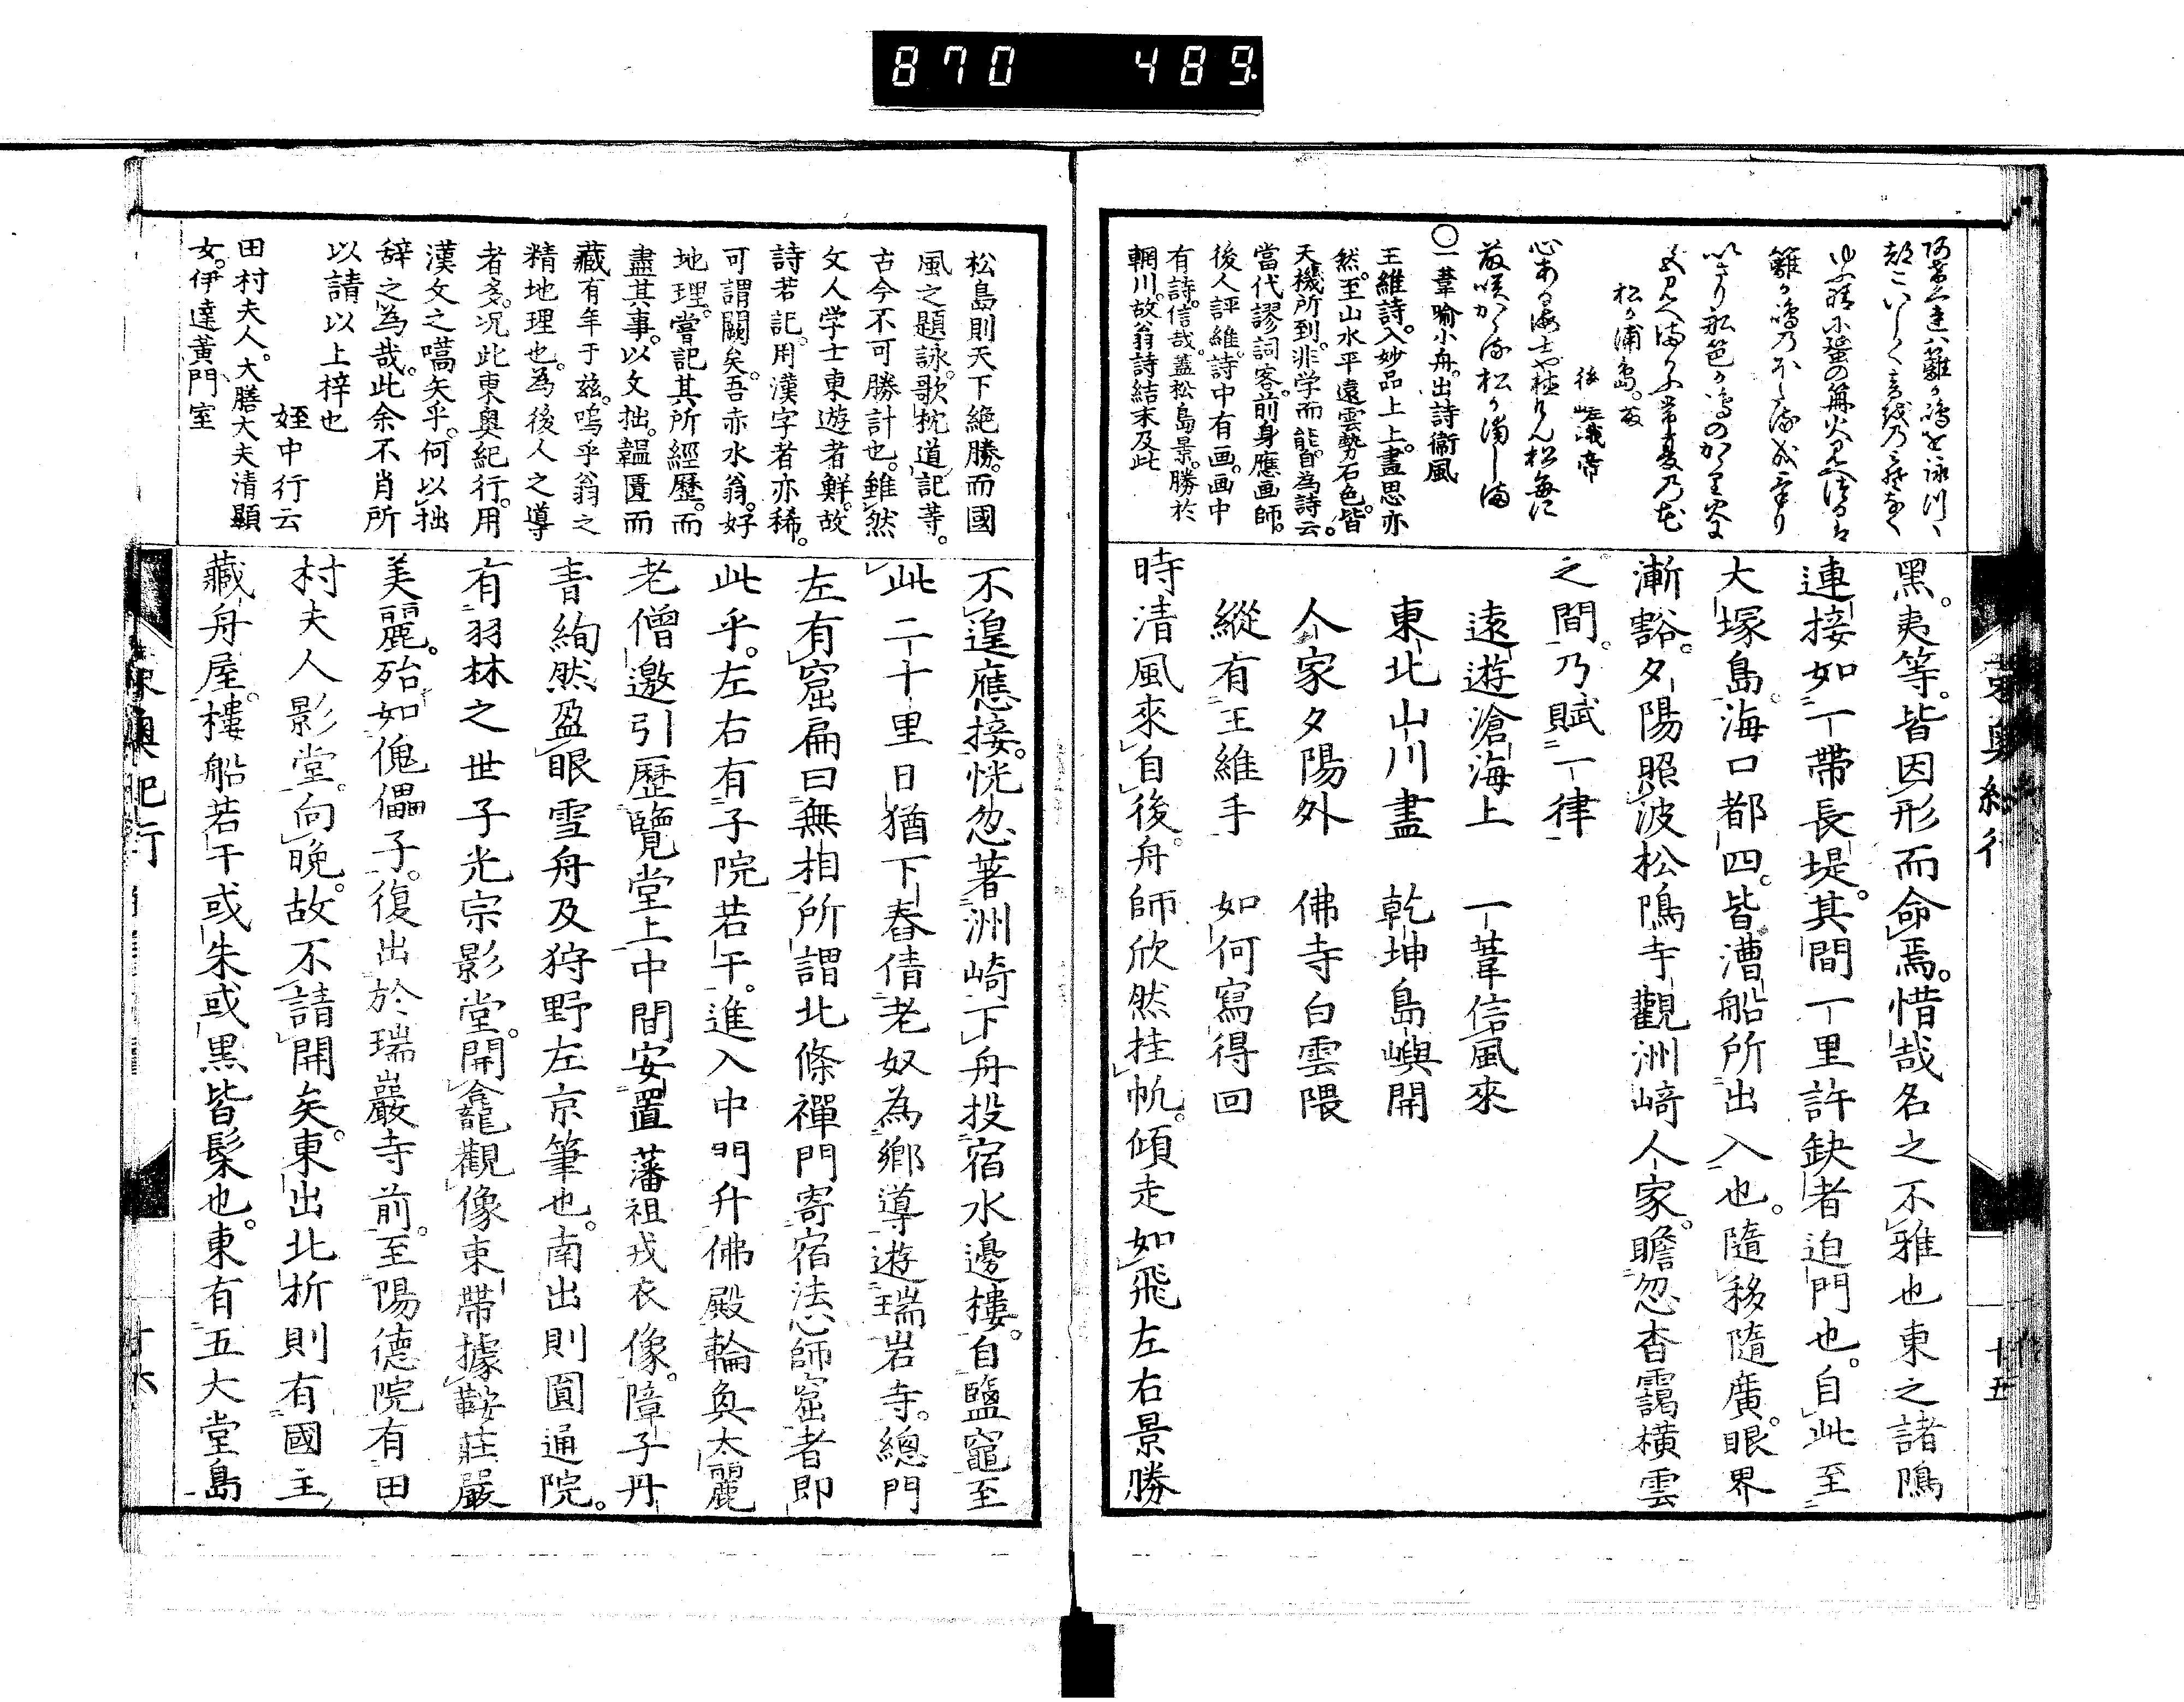 870 489
松か浦島
後嵯峨帝
心ある
○一葦喻小舟。出詩衞風
王維詩。入妙品上上。畫思亦
然。至山水平遠雲勢石色。皆
天機所到。非学而能。皆為詩云。
當代謬詞客。前身應画師。
後人評維。詩中有画。画中
有詩。信哉。蓋松島景。勝於
輞川。故翁詩結末及此
黑。夷等。皆因形而命焉。惜哉名之不雅也東之諸隝
連接如一帶長堤。其間一里許缺者迫門也。自此至
大塚島。海口都四。皆漕船所出入也。隨移隨廣。眼界
漸豁。夕陽照波松隝寺觀洲﨑人家。瞻忽杳靄橫雲
之間。乃賦一律
遠遊滄海上　一葦信風來
東北山川盡　乾坤島嶼開
人家夕陽外　佛寺白雲隈
縱有王維手　如何寫得回
時清風來自後。舟師欣然挂帆。傾走如飛左右景勝
東奧紀行
十五
松島則天下絶勝。而國
風之題詠。歌枕。道記等。
古今不可勝計也。雖然
文人学士東遊者鮮。故
詩若記。用漢字者亦稀。
可謂闕矣。吾赤水翁。好
地理。嘗記其所經歷。而
盡其事。以文拙。韞匱而
藏有年于茲。嗚乎翁之
精地理也。為後人之導
者多。况此東奧紀行。用
漢文之嚆矢乎。何以拙
辞之為哉。此余不肖所
以請以上梓也
姪中行云
田村夫人。大膳大夫清顯
女。伊達黃門室
不遑應接。恍忽著洲崎下舟投宿水邊樓。自鹽竈至
此二十里日猶下舂倩老奴為鄉導遊瑞岩寺。總門
左有窟扁曰無相所謂北條禪門寄宿法心師窟者即
此乎。左右有子院若干。進入中門升佛殿輪奐太麗
老僧邀引歷覽堂上中間安置藩祖戎衣像。障子丹
青絢然盈眼雪舟及狩野左京筆也。南出則圓通院。
有羽林之世子光宗影堂。開龕觀像束帶據鞍莊嚴
美麗。殆如傀儡子。復出於瑞巖寺前。至陽德院有田
村夫人影堂。向晚。故不請開矣。東出北折則有國主
藏舟屋。樓船若干或朱或黒皆髹也。東有五大堂島
東奧紀行
十六